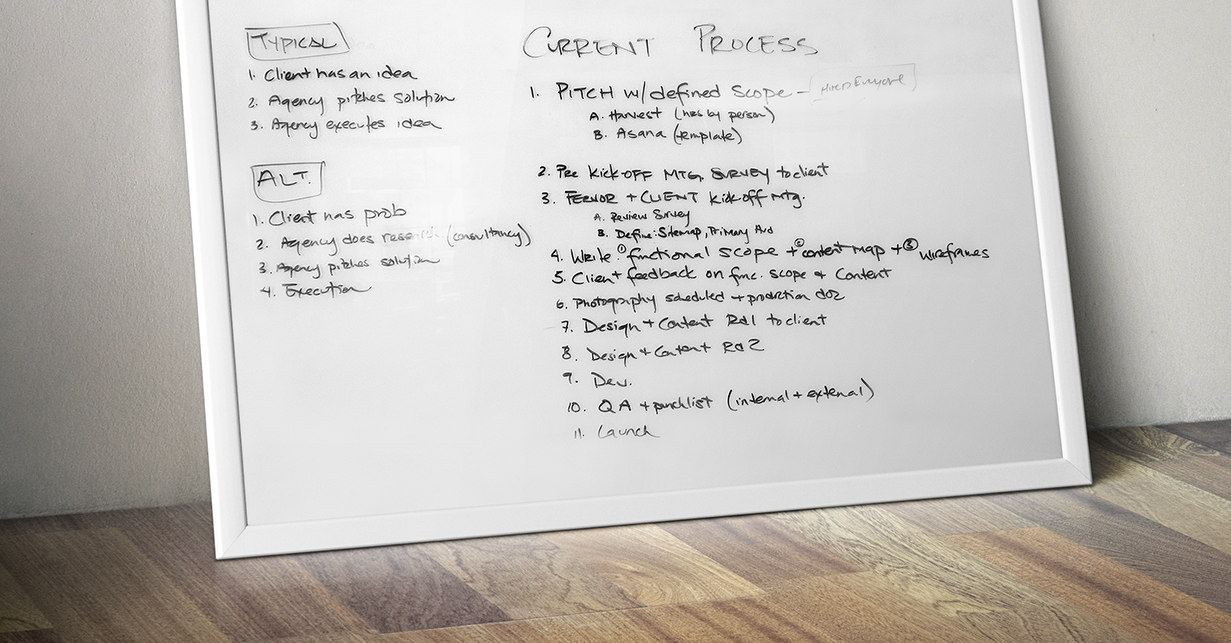 TYPICAL
1. Client has an idea
2. Agency pitches solution
3. Agency executes idea
ALT.
1. Client has prob
2. Agency does research (consultancy)
3. Agency pitches solution
4. Execution
CURRENT PROCESS
1. PITCH w/defined SCOPE -
A. Harvest (hrs by person)
B. Asana (template)
2. Pre KICK-OFF MTG. SURVEY to client
3. + CLIENT kick-off mtg.
A. Review Survey
B. Define: Sitemap, Primary Aud
4. Write ① functional scope + ② content map + ③ wireframes
5. Client feedback on func. scope + Content
6. Photography scheduled + production doz
7. Design + Content Rd1 to client
8. Design + Content Rd2
9. Dev.
10. QA + punchlist (internal + external)
11. Launch